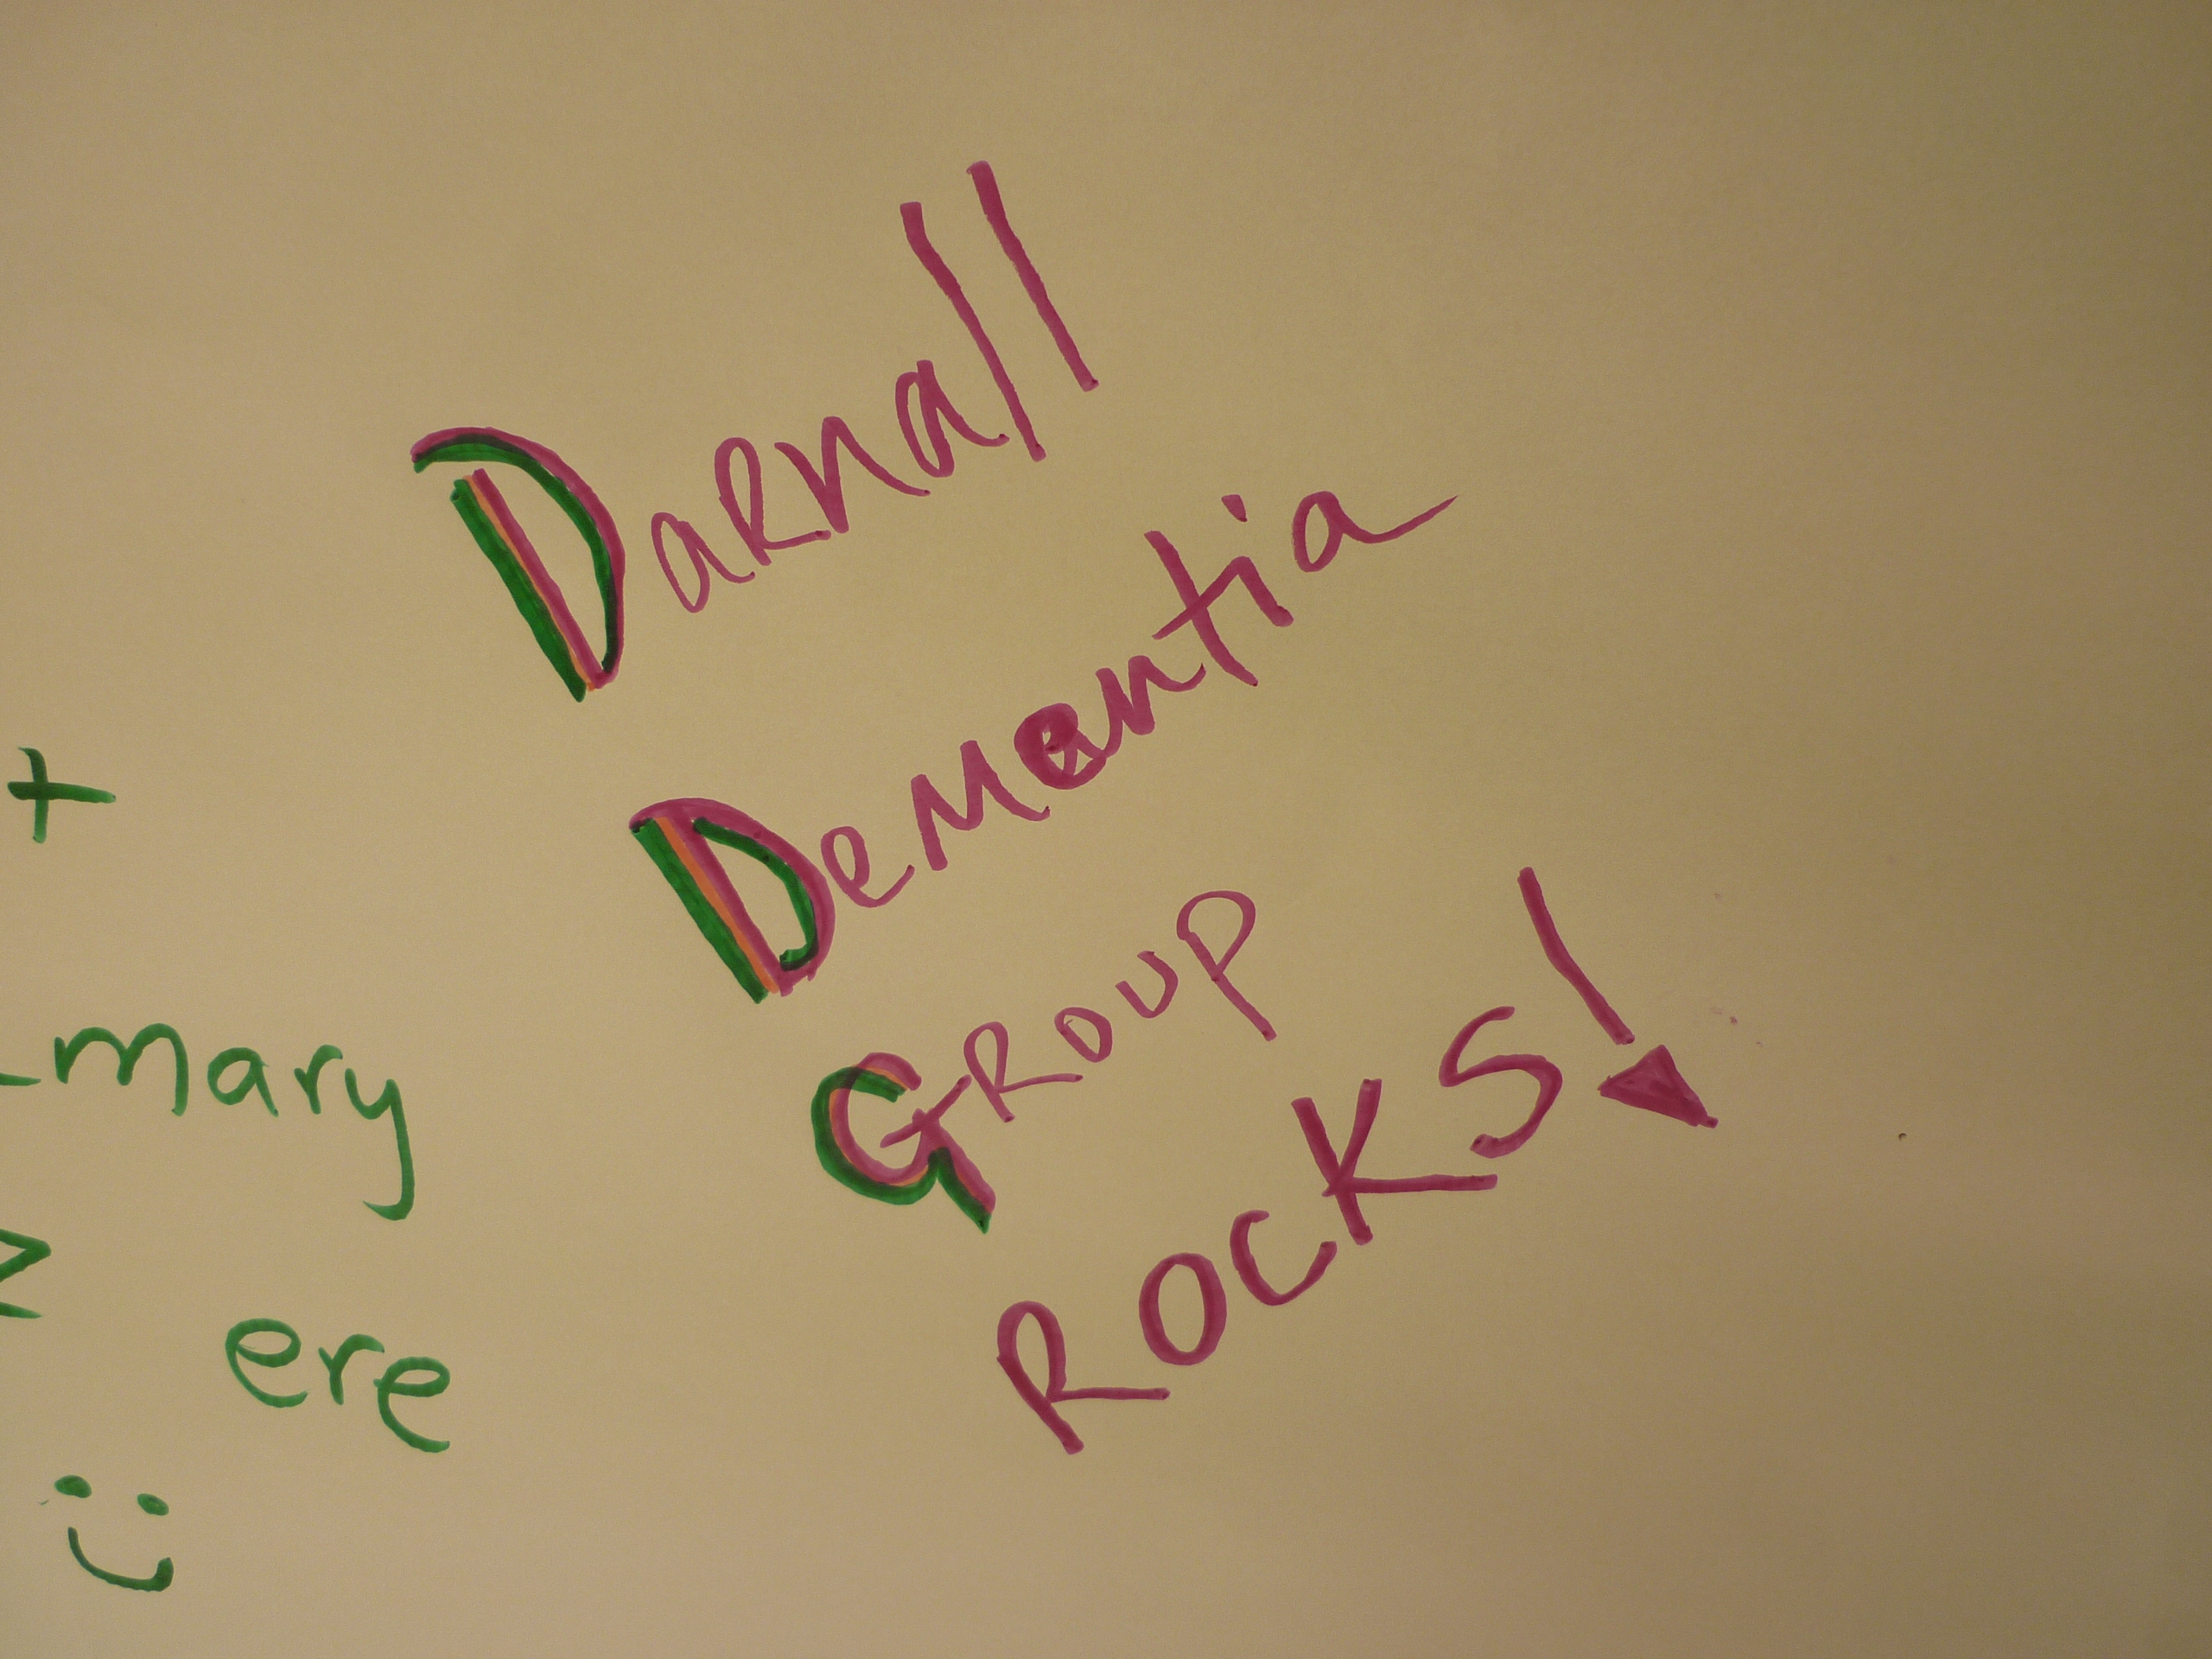 Darnall
Dementia
Group
ROCKS!
+
mary
ere